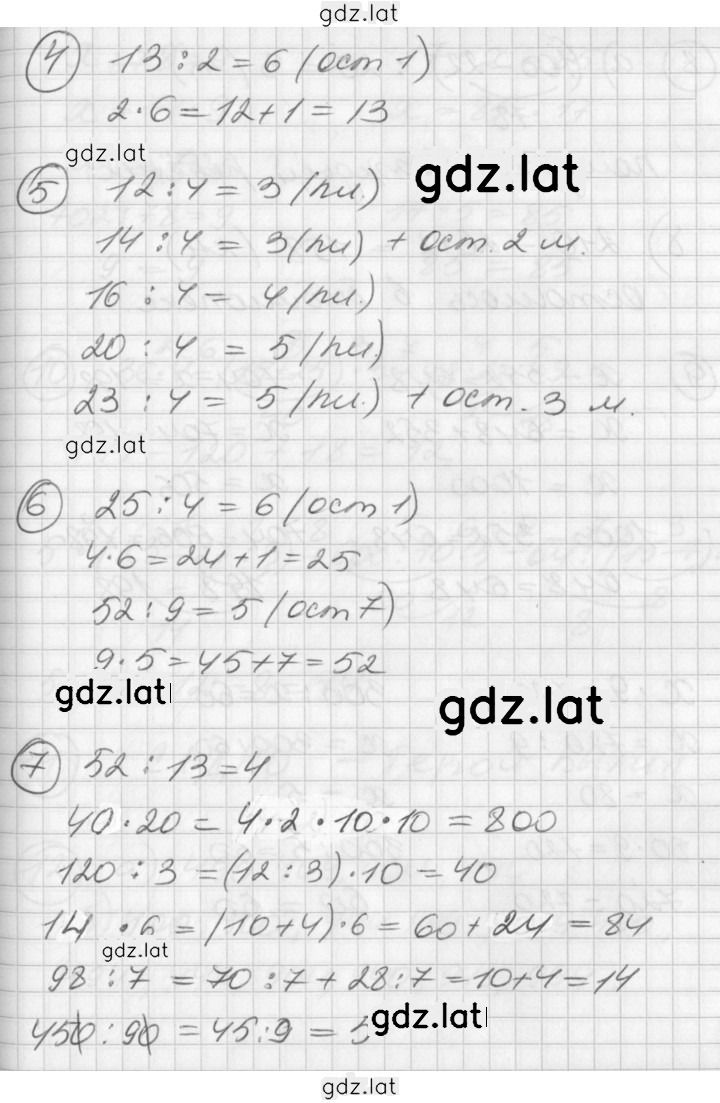 gdz.lat
4 13 : 2 = 6 (ост 1)
2·6 = 12 + 1 = 13
gdz.lat
5 12 : 4 = 3 (пи.)
gdz.lat
14 : 4 = 3 (пи) + ост. 2 м.
16 : 4 = 4 (пи.)
20 : 4 = 5 (пи.)
23 : 4 = 5 (пи.) + ост. 3 м.
gdz.lat
6 25 : 4 = 6 (ост 1)
4·6 = 24 + 1 = 25
52 : 9 = 5 (ост 7)
9·5 = 45 + 7 = 52
gdz.lat
gdz.lat
7 52 : 13 = 4
40·20 = 4·2·10·10 = 800
120 : 3 = (12 : 3)·10 = 40
14 ·6 = (10+4)·6 = 60 + 24 = 84
gdz.lat
98 : 7 = 70 : 7 + 28 : 7 = 10 + 4 = 14
450 : 90 = 45 : 9 = 5
gdz.lat
gdz.lat